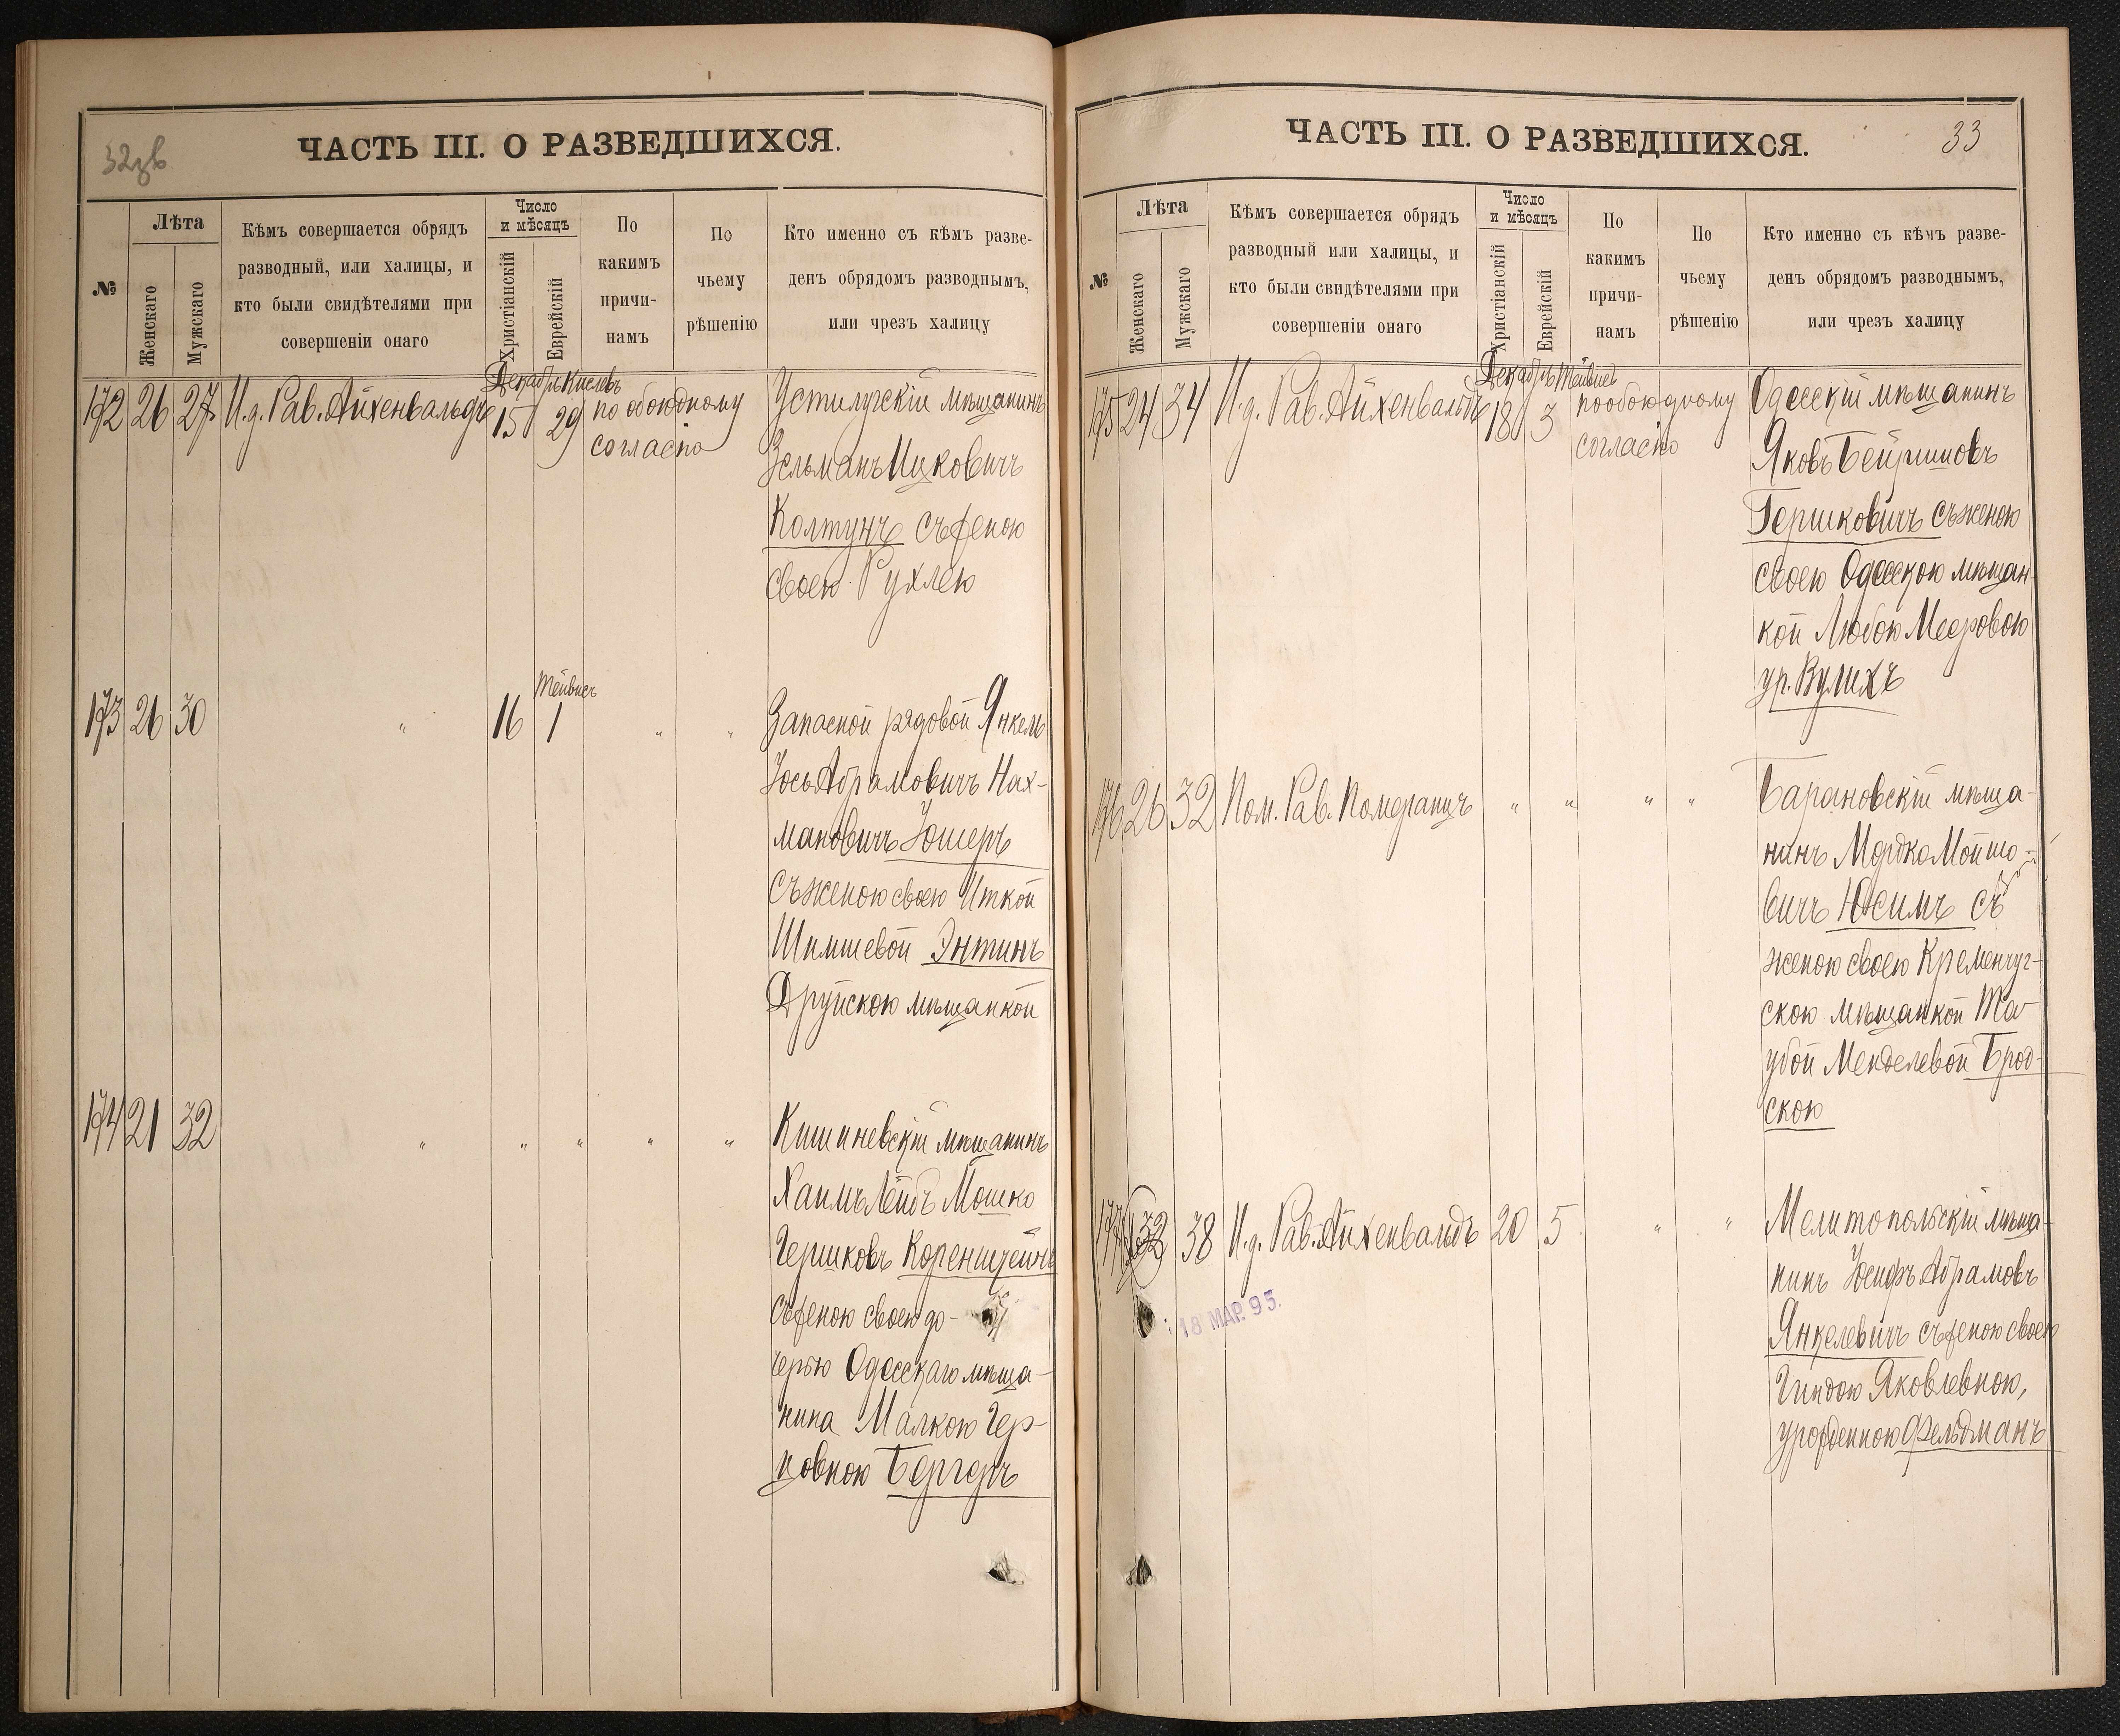 ЧАСТЬ III. О РАЗВЕДШИХСЯ.
№
Лѣта
Женскаго
Мужскаго
Кѣмъ совершается обрядъ
разводный, или халицы, и
кто были свидѣтелями при
совершеніи онаго
Число
и мѣсяцъ
Христіанскій
Еврейскій
По
какимъ
причи-
намъ
По
чьему
рѣшенію
Кто именно съ кѣмъ разве-
денъ обрядомъ разводнымъ,
или чрезъ халицу
172 26 27 И.д. Рав. Айхенвальдъ
Декабрь Кислевъ
15 29
по обоюдному
согласію
Устилугскій мѣщанинъ
Зельманъ Ицковичъ
Колтунъ съ женою
своею Рухлею
173 26 30 " 16
Тейвисъ
1 " "
Запасной рядовой Янкель
Іось Абрамовичъ Нах-
мановичъ Іошеръ
съ женою своею Иткой
Шимшевой Энтинъ
Друйскою мѣщанкой
174 21 32 " " " " "
Кишиневскій мѣщанинъ
Хаимъ Лейбъ Мошко
Гершковъ Коренштейнъ
съ женою своею до-
черью Одесскаго мѣща-
нина Малкою Гер-
цовною Бергеръ
ЧАСТЬ III. О РАЗВЕДШИХСЯ.
33
№
Лѣта
Женскаго
Мужскаго
Кѣмъ совершается обрядъ
разводный или халицы, и
кто были свидѣтелями при
совершеніи онаго
Число
и мѣсяцъ
Христіанскій
Еврейскій
По
какимъ
причи-
намъ
По
чьему
рѣшенію
Кто именно съ кѣмъ разве-
денъ обрядомъ разводнымъ,
или чрезъ халицу
175 24 34 И.д. Рав. Айхенвальдъ
Декабрь Тейвисъ
18 3
по обоюдному
согласію
Одесскій мѣщанинъ
Яковъ Бейришовъ
Гершковичъ съ женою
своею Одесскою мѣщан-
кой Любою Мееровою
ур. Вулихъ
176 26 32 Пом. Рав. Померанцъ " " " "
Барановскій мѣща-
нинъ Мордко Мойшо-
вичъ Юсимъ съ
женою своею Кременчуг-
скою мѣщанкой Та-
убой Менделевой Брод-
скою
177 32 38 И.д. Рав. Айхенвальдъ 20 5 " "
18 МАР. 95.
Мелитопольскій мѣща-
нинъ Іосифъ Абрамовъ
Янкелевичъ съ женою своею
Гиндою Яковлевною,
урожденною Фельдманъ